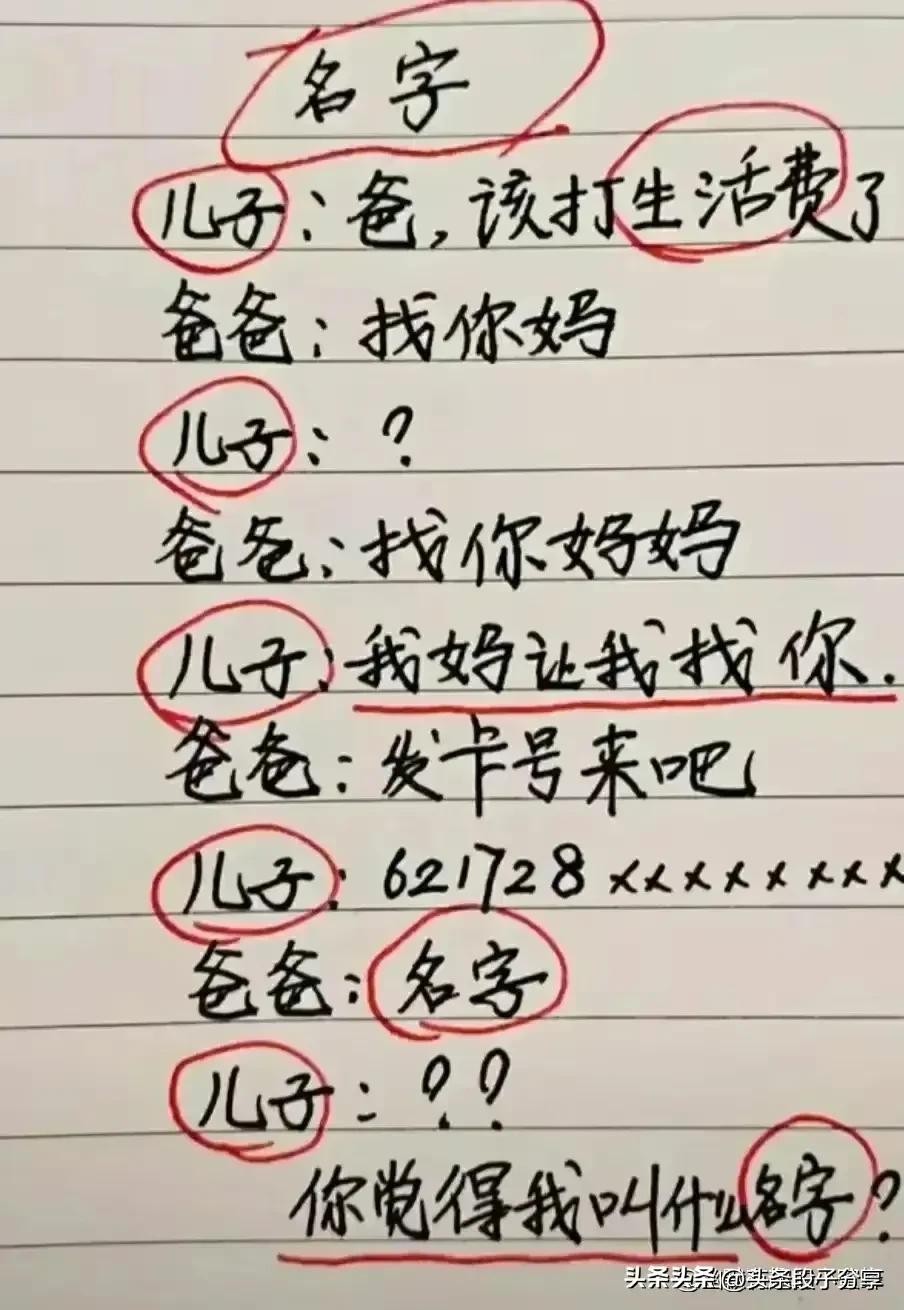 名字
儿子：爸，该打生活费了
爸爸：找你妈
儿子：？
爸爸：找你妈妈
儿子：我妈让我找你.
爸爸：发卡号来吧
儿子：621728××××××××
爸爸：名字
儿子：？？
你觉得我叫什么名字？
头条头条@头条段子分享